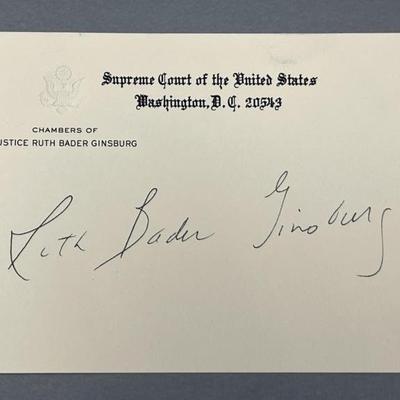 Supreme Court of the United States
Washington, D. C. 20543
CHAMBERS OF
USTICE RUTH BADER GINSBURG
Ruth Bader Ginsburg